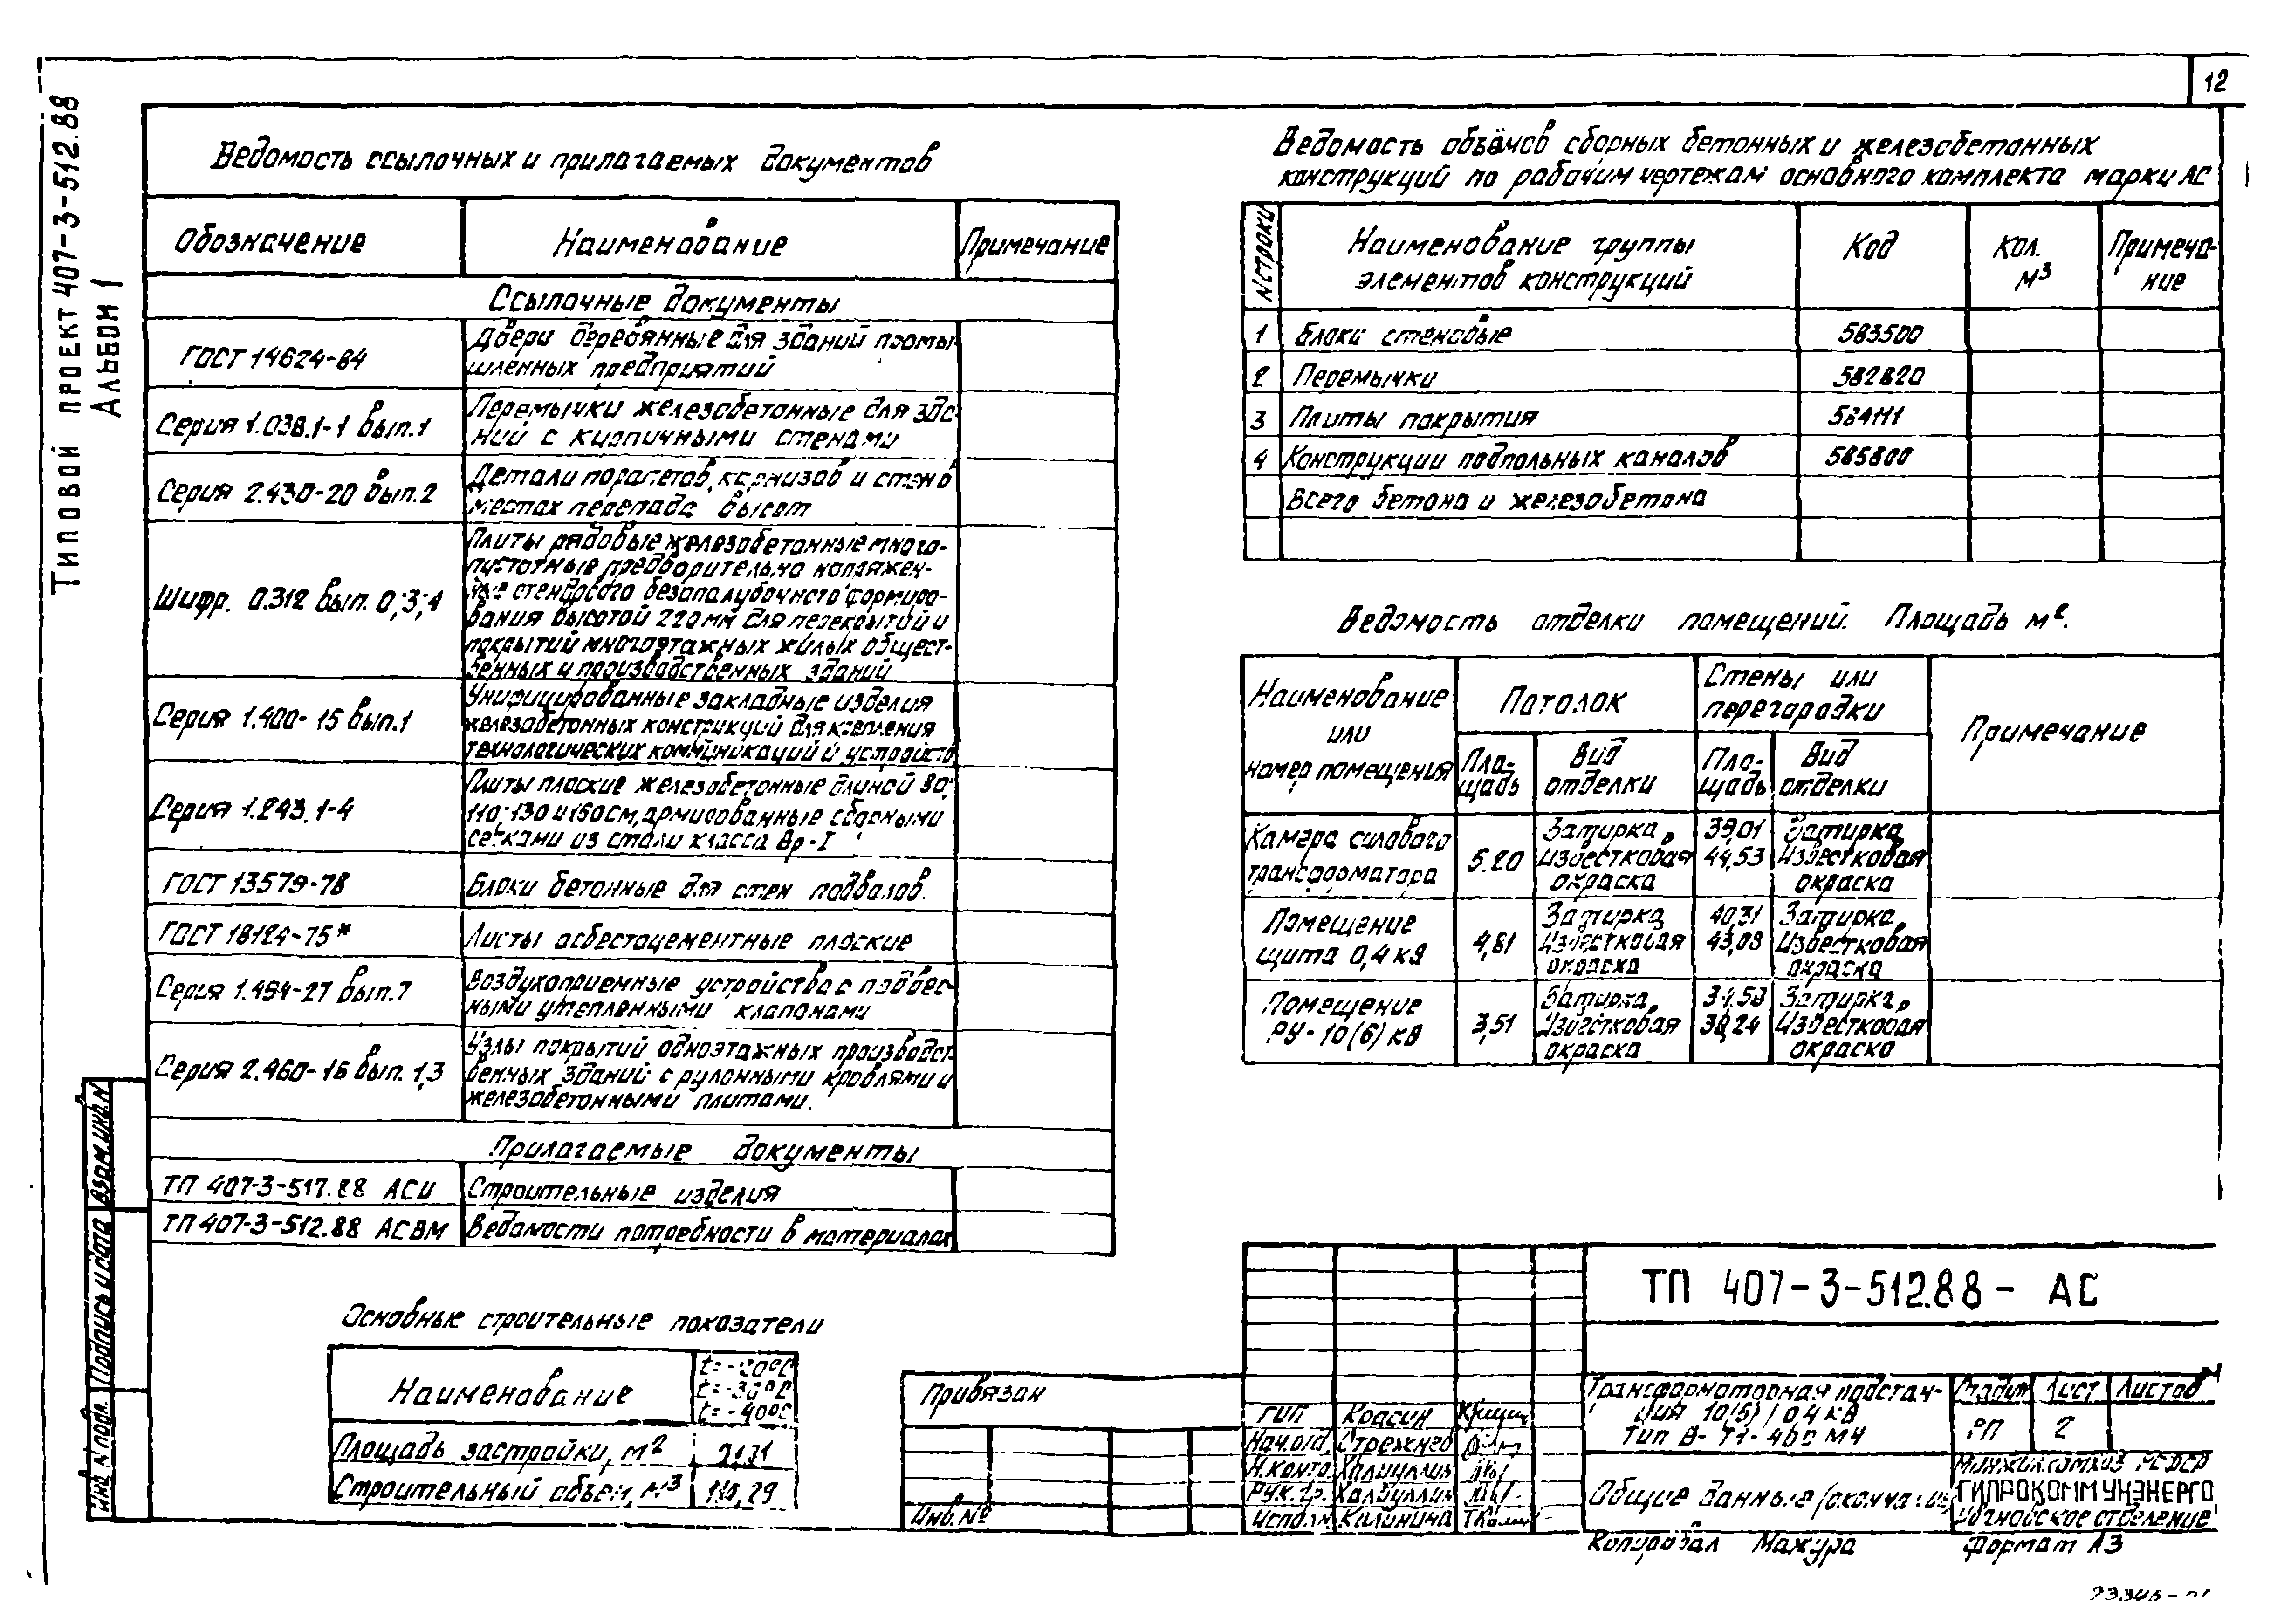 12
Типовой проект 407-3-512.88
Альбом 1
Ведомость ссылочных и прилагаемых документов
Обозначение Наименование Примечание
Ссылочные документы
ГОСТ 14624-84
Двери деревянные для зданий промы-
шленных предприятий
Серия 1.038.1-1 вып.1
Перемычки железобетонные для зда-
ний с кирпичными стенами
Серия 2.430-20 вып.2
Детали парапетов, карнизов и стен в
местах перепада высот
Шифр. 0.312 вып. 0;3;4
Плиты рядовые железобетонные много-
пустотные предварительно напряжен-
ные стендового безопалубочного формиро-
вания высотой 220мм для перекрытий и
покрытий многоэтажных жилых общест-
венных и производственных зданий
Серия 1.400-15 вып.1
Унифицированные закладные изделия
железобетонных конструкций для крепления
технологических коммуникаций и устройств
Серия 1.243.1-4
Плиты плоские железобетонные длиной
110; 130 и 160см, армированные сварными
сетками из стали класса Вр-I
ГОСТ 13579-78
Блоки бетонные для стен подвалов.
ГОСТ 18124-75*
Листы асбестоцементные плоские
Серия 1.494-27 вып.7
Воздухоприемные устройства с подвес-
ными утепленными клапанами
Серия 2.460-16 вып. 1,3
Узлы покрытий одноэтажных производст-
венных зданий с рулонными кровлями и
железобетонными плитами.
Прилагаемые документы
ТП 407-3-517.88 АСИ Строительные изделия
ТП 407-3-512.88 АСВМ Ведомости потребности в материалах
Основные строительные показатели
Наименование
t=-20°С
t=-30°С
t=-40°С
Площадь застройки, м²
Строительный объем, м³
Ведомость объёмов сборных бетонных и железобетонных
конструкций по рабочим чертежам основного комплекта марки АС
N строки
Наименование группы
элементов конструкций
Код
Кол.
м³
Примеча-
ние
1 Блоки стеновые 583500
2 Перемычки 582820
3 Плиты покрытия 584111
4 Конструкции подпольных каналов 585800
Всего бетона и железобетона
Ведомость отделки помещений. Площадь м².
Наименование
или
номер помещения
Потолок
Стены или
перегородки
Примечание
Пло-
щадь
Вид
отделки
Пло-
щадь
Вид
отделки
Камера силового
трансформатора
5.20
Затирка,
Известковая
окраска
39,01
44,53
Затирка,
Известковая
окраска
Помещение
щита 0,4 кВ
4,81
Затирка,
Известковая
окраска
40,31
43,08
Затирка,
Известковая
окраска
Помещение
РУ-10(6) кВ
3,51
Затирка,
Известковая
окраска
34.58
38,24
Затирка,
Известковая
окраска
Взам.инв.N
Подпись и дата
Инв. N подл.
Привязан
Инв. №
ГИП Красин
Нач.отд. Стрежнев
Н.контр. Халиуллин
Рук. гр. Халиуллин
Исполн. Калинина
ТП 407-3-512.88 - АС
Трансформаторная подстан-
ция 10(6)/0,4 кВ
Стадия Лист Листов
РП 2
Общие данные
Минжилкомхоз РСФСР
ГИПРОКОММУНЭНЕРГО
отделение
Копировал Мажура
Формат А3